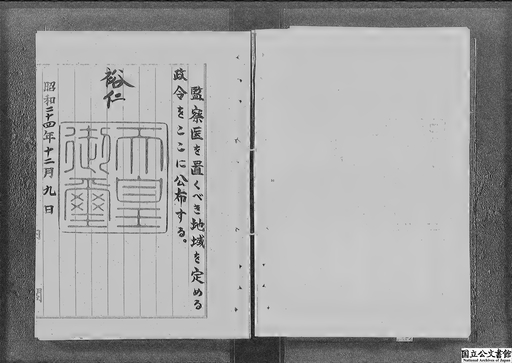 監察医を置くべき地域を定める
政令をここに公布する。
裕仁
天皇
御璽
昭和二十四年十二月九日
国立公文書館
National Archives of Japan